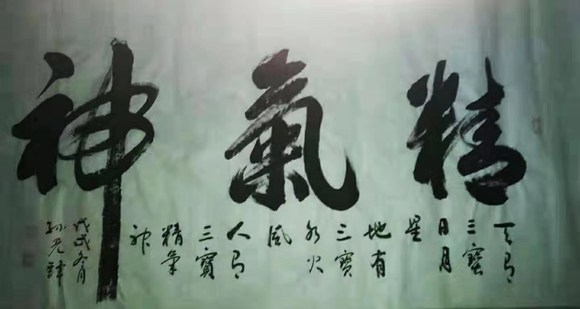 精氣神
天有
三寶
日月
星
地有
三寶
水火
風
人有
三寶
精氣
神
戊戌